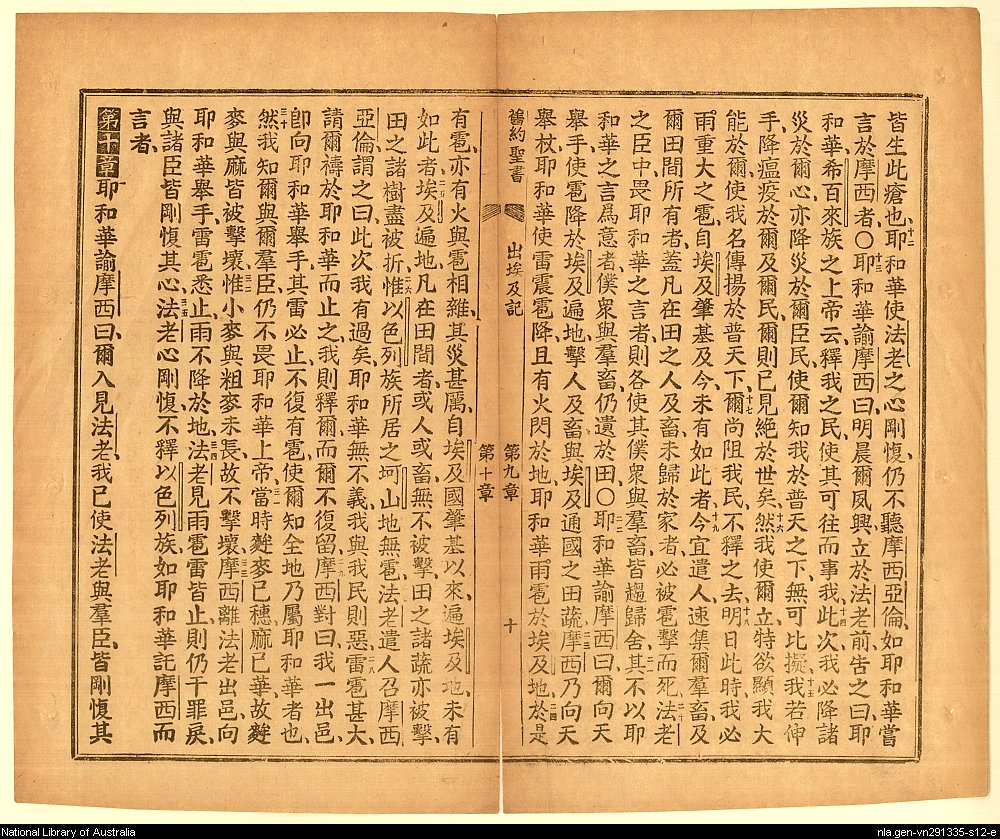 皆生此瘡也、十二耶和華使法老之心剛愎、仍不聽摩西亞倫、如耶和華嘗
言於摩西者、○十三耶和華諭摩西曰、明晨爾夙興、立於法老前、告之曰、耶
和華希百來族之上帝云、釋我之民、使其可往而事我、十四此次我必降諸
災於爾心、亦降災於爾臣民、使爾知我於普天之下、無可比擬、十五我若伸
手、降瘟疫於爾及爾民、爾則已見絕於世矣、十六然我使爾立、特欲顯我大
能於爾、使我名傳揚於普天下、十七爾尚阻我民、不釋之去、十八明日此時、我必
雨重大之雹、自埃及肇基及今、未有如此者、十九今宜遣人速集爾羣畜、及
爾田間所有者、蓋凡在田之人及畜、未歸於家者、必被雹擊而死、二十法老
之臣中、畏耶和華之言者、則各使其僕衆與羣畜、皆趨歸舍、二一其不以耶
和華之言爲意者、僕衆與羣畜、仍遺於田、○二二耶和華諭摩西曰、爾向天
舉手、使雹降於埃及遍地、擊人及畜、與埃及通國之田蔬、二三摩西乃向天
舉杖、耶和華使雷震雹降、且有火閃於地、耶和華雨雹於埃及地、二四於是
舊約聖書 出埃及記 第九章 十
第十章
有雹、亦有火與雹相雜、其災甚厲、自埃及國肇基以來、遍埃及地、未有
如此者、二五埃及遍地、凡在田間者、或人或畜、無不被擊、田之諸蔬亦被擊、
田之諸樹盡被折、二六惟以色列族所居之坷山地無雹、二七法老遣人召摩西
亞倫、謂之曰、此次我有過矣、耶和華無不義、我與我民則惡、二八雷雹甚大、
請爾禱於耶和華而止之、我則釋爾、而爾不復留、二九摩西對曰、我一出邑、
卽向耶和華舉手、其雷必止、不復有雹、使爾知全地乃屬耶和華者也、
三十然我知爾與爾羣臣、仍不畏耶和華上帝、三一當時麰麥已穗、麻已華、故麰
麥與麻皆被擊壞、三二惟小麥與粗麥未長、故不擊壞、三三摩西離法老出邑、向
耶和華舉手、雷雹悉止、雨不降於地、三四法老見雨雹雷皆止、則仍干罪戾、
與諸臣皆剛愎其心、三五法老心剛愎、不釋以色列族、如耶和華託摩西而
言者、
第十章 一耶和華諭摩西曰、爾入見法老、我已使法老與羣臣、皆剛愎其
National Library of Australia
nla.gen-vn291335-s12-e